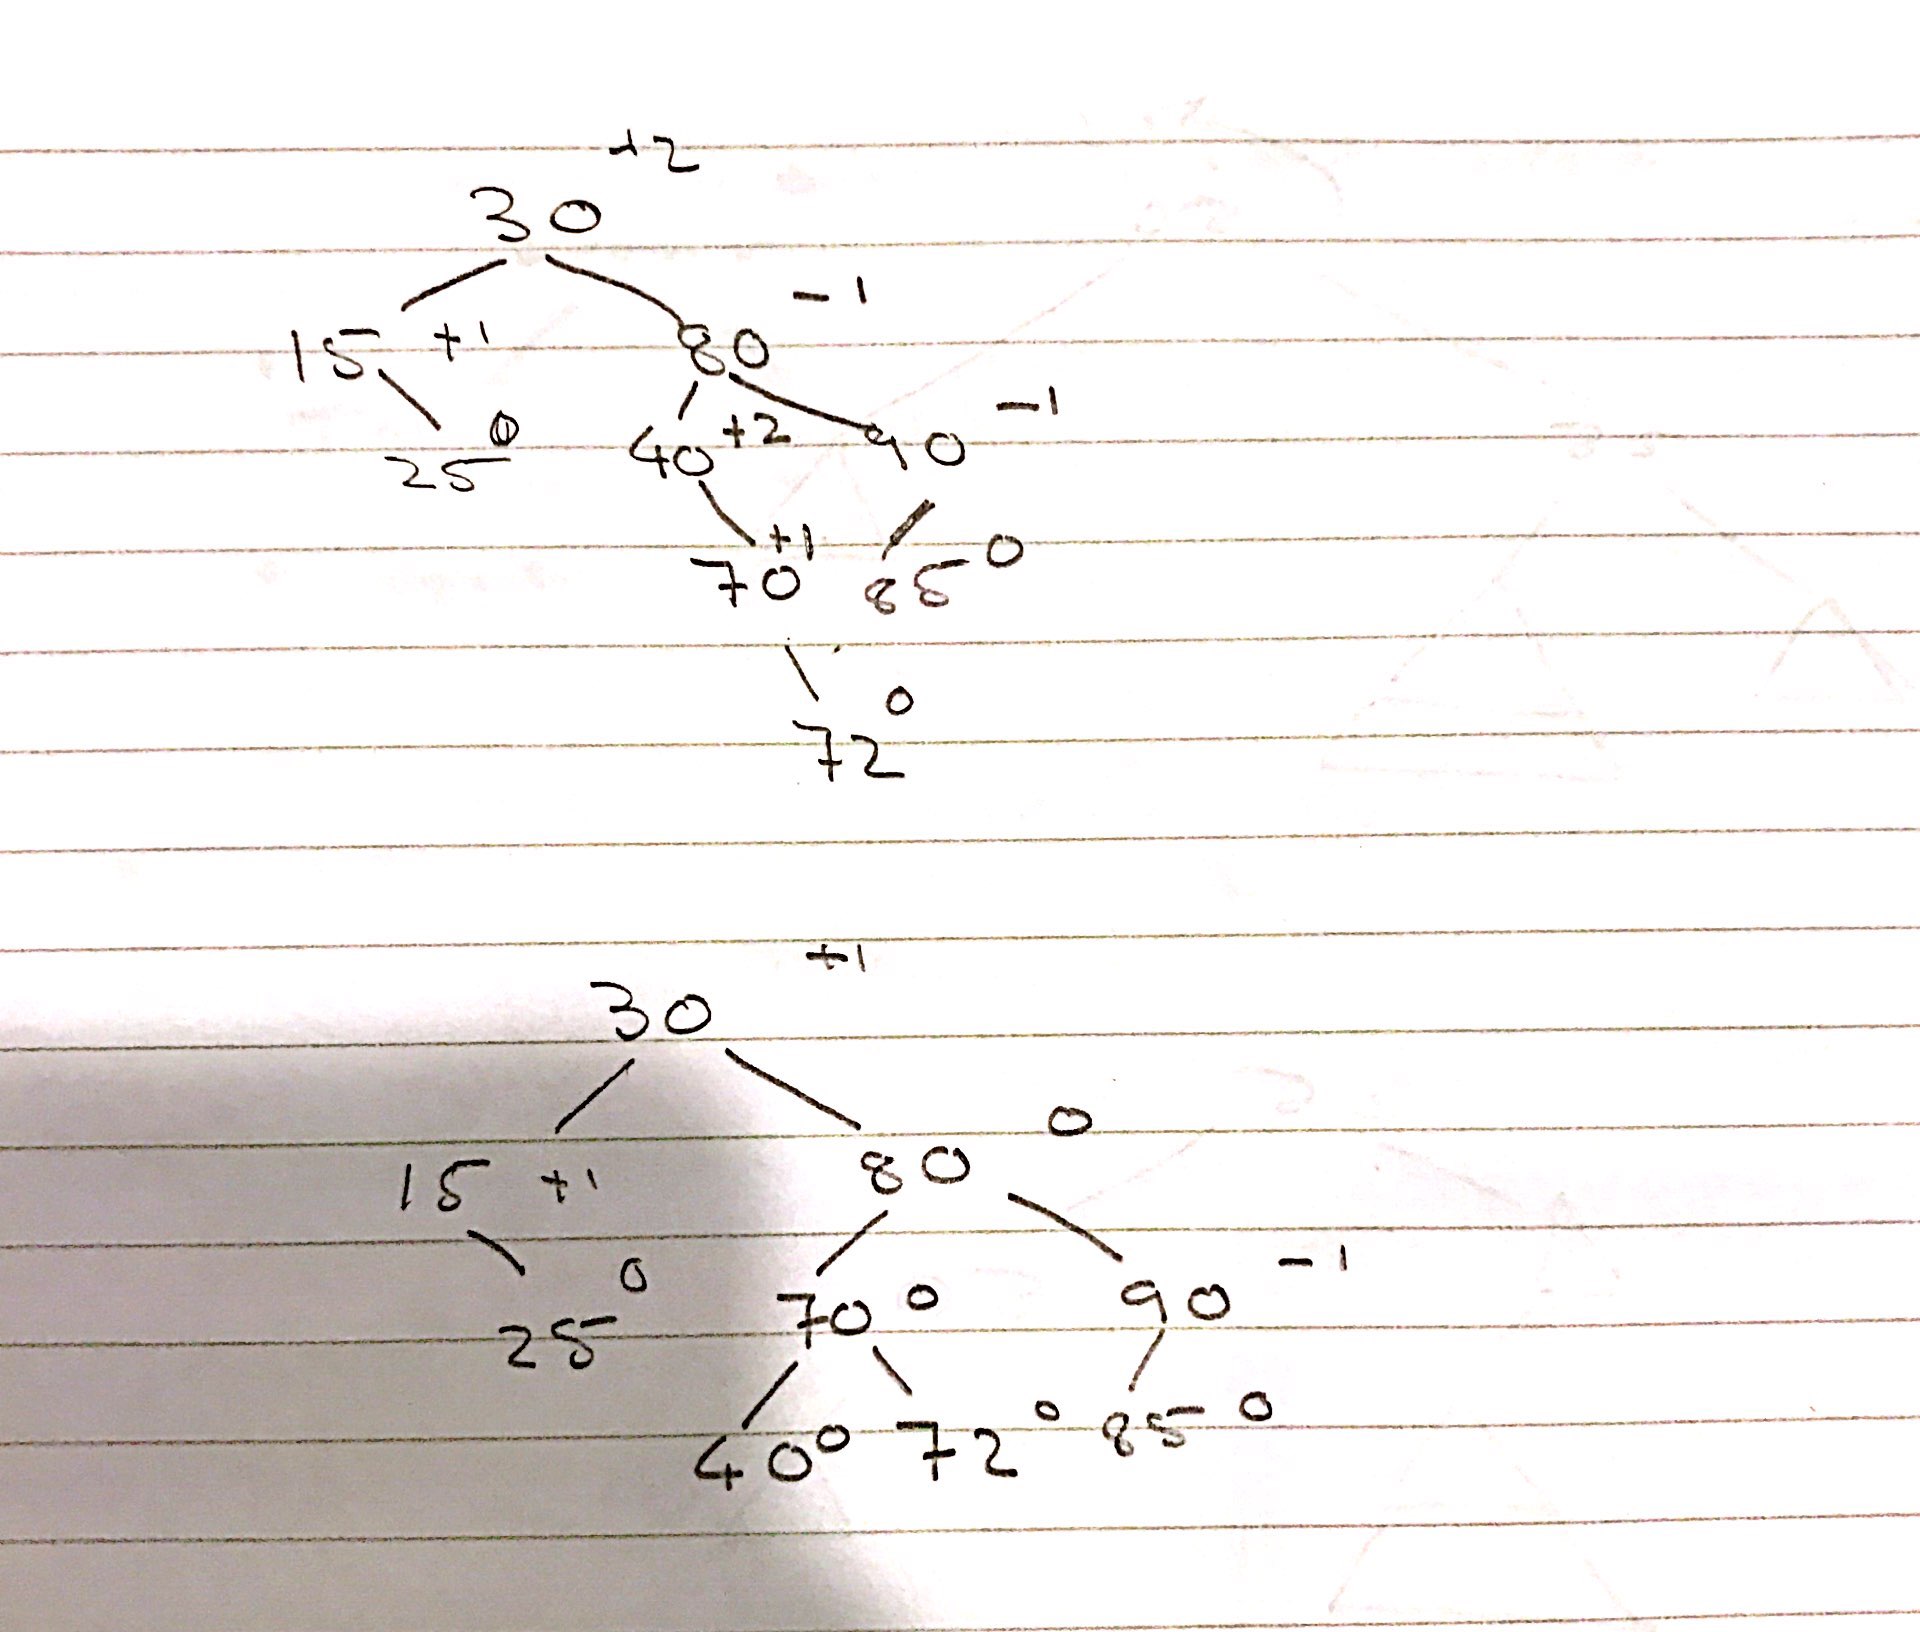 +2
30
-1
15 +1 80
-1
25 0 40 +2 90
70 +1 85 0
0
72
+1
30
0
15 +1 80
0 -1
25 70 0 90
40 0 72 0 85 0